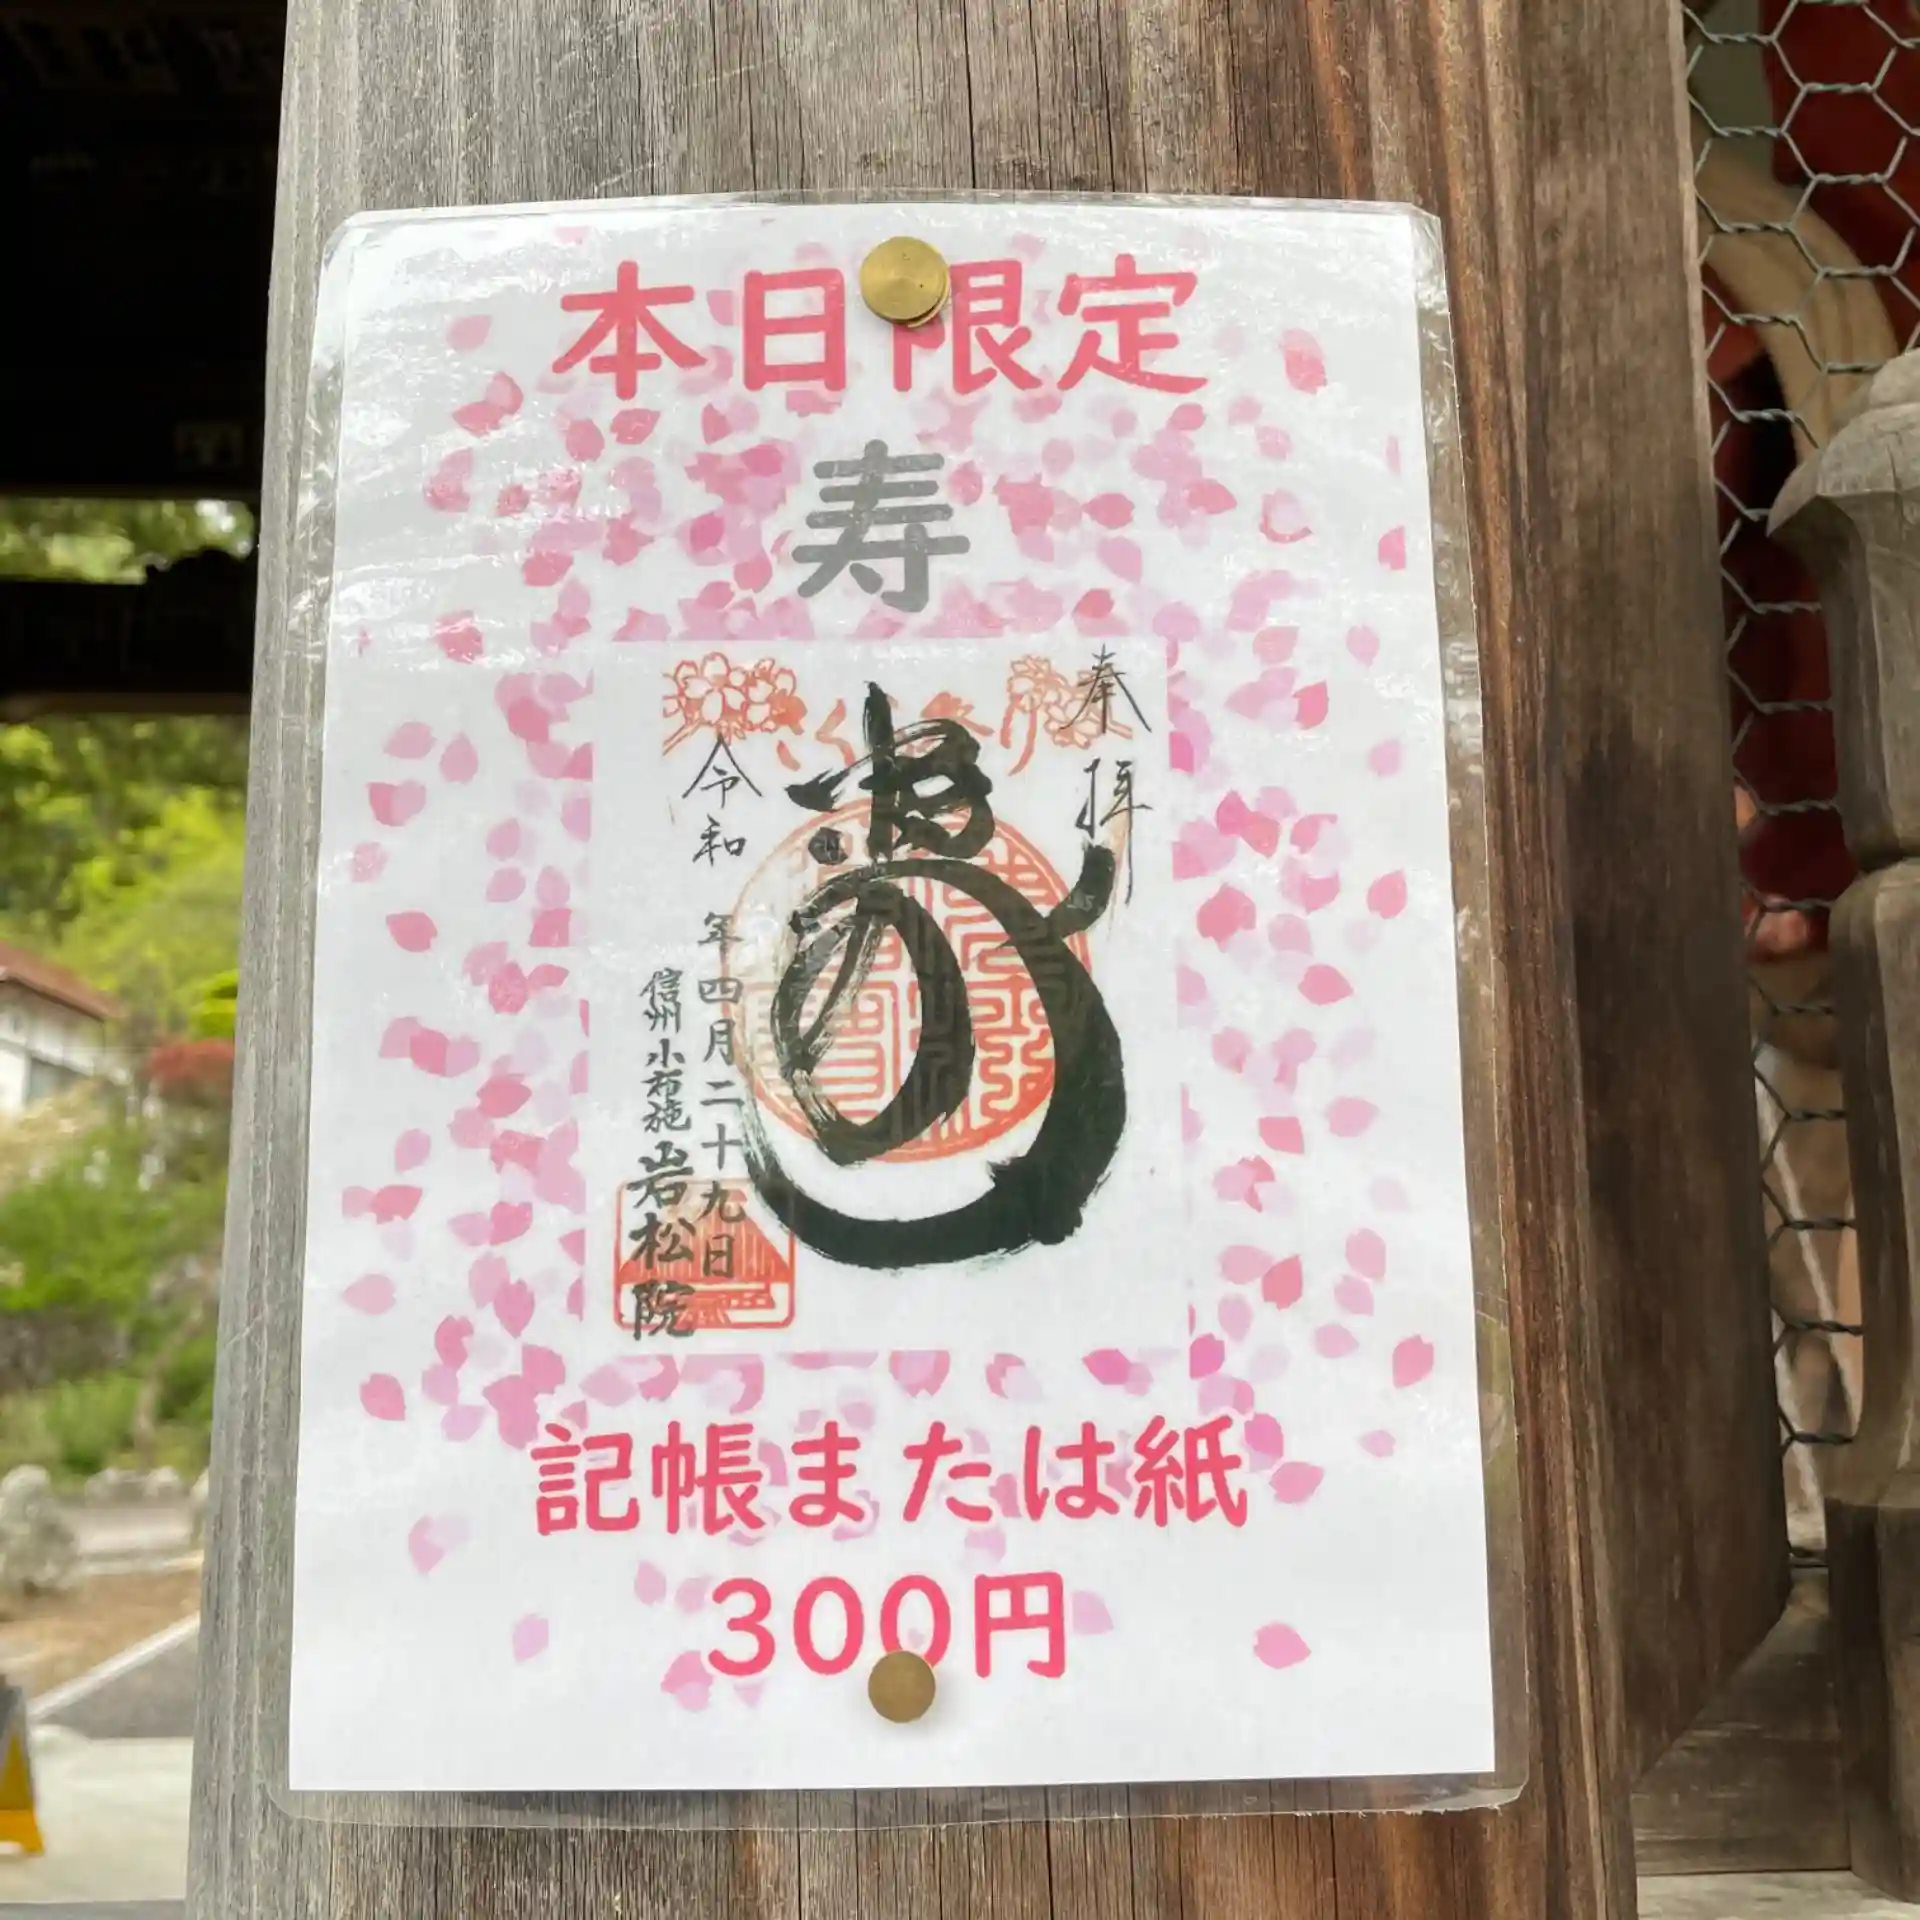 本日限定
寿
奉拝
さくら祭り
寿
令和 年四月二十九日
信州小布施岩松院
記帳または紙
300円